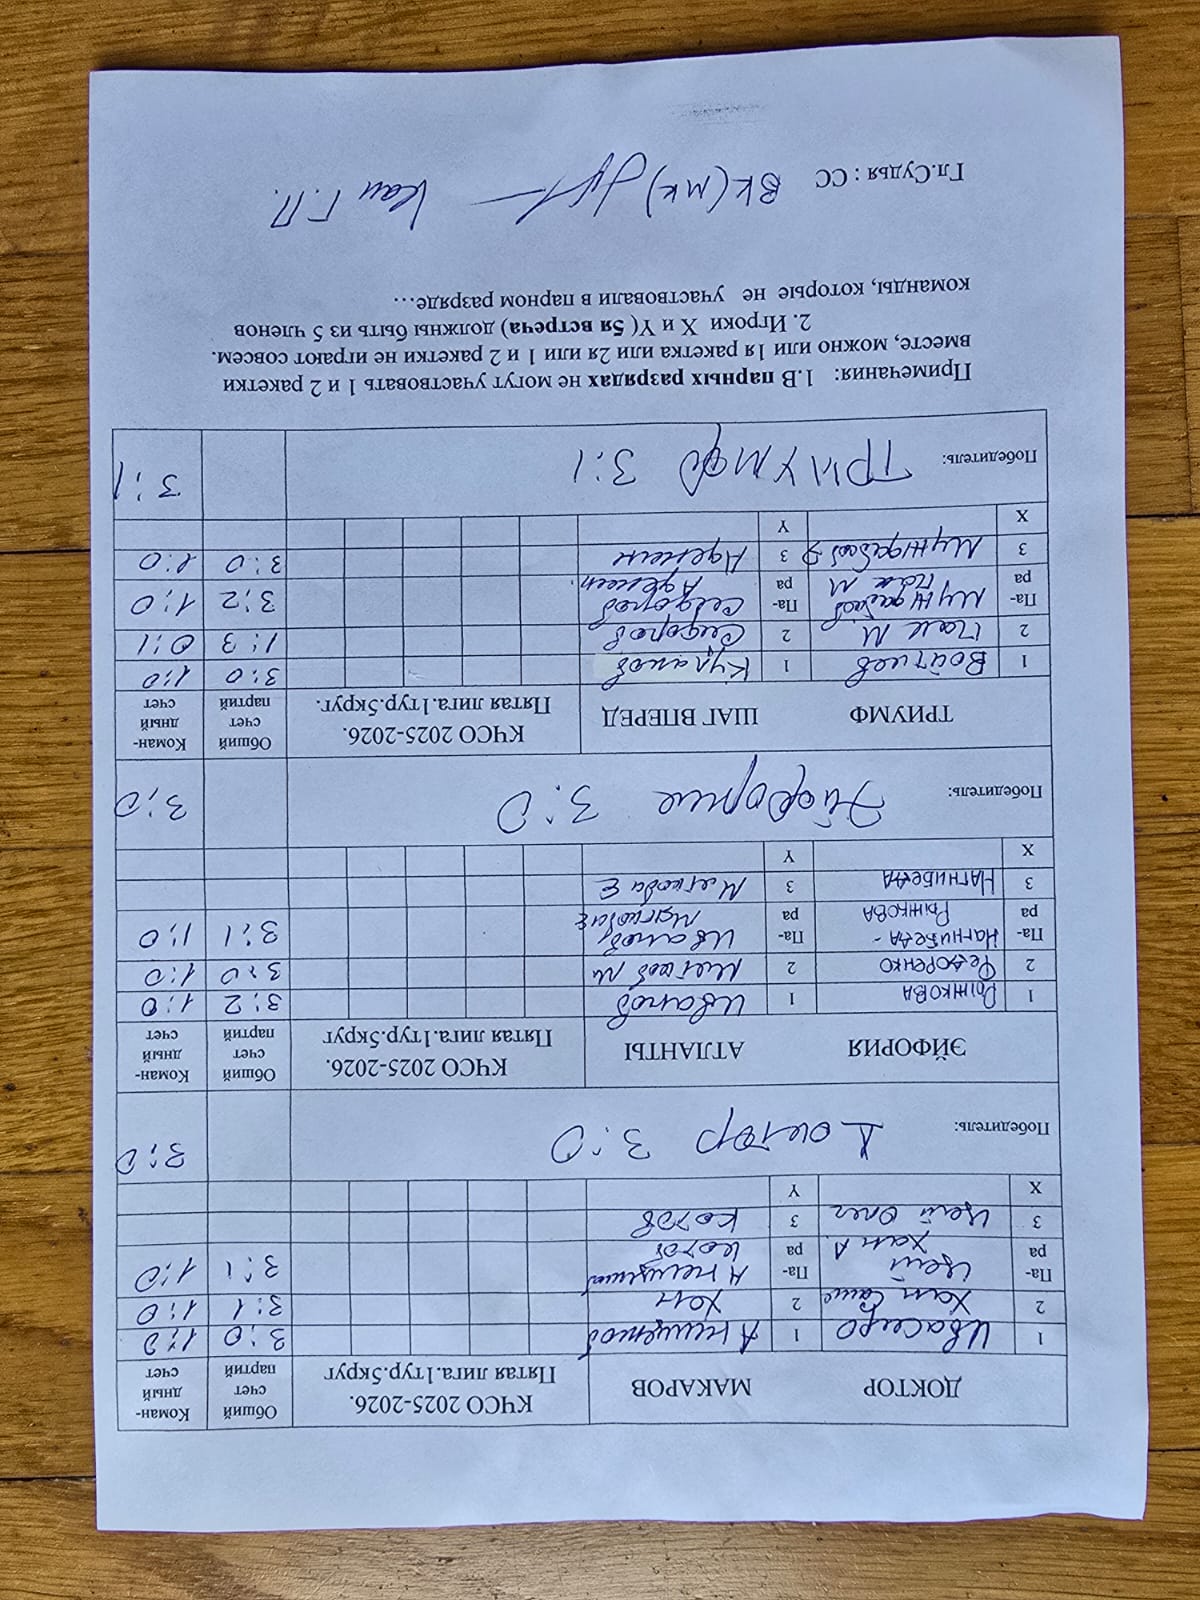 ДОКТОР МАКАРОВ КЧСО 2025-2026. Пятая лига.1тур.5круг Общий счет партий Коман-дный счет
1 Ивасеро 1 3:0 1:0
2 Хан Саше 2 Хон 3:1 1:0
Па-ра Цой Хан А. Па-ра Котов 3:1 1:0
3 Цой Олег 3 Котов
X Y
Победитель: Доктор 3:0 3:0
ЭЙФОРИЯ АТЛАНТЫ КЧСО 2025-2026. Пятая лига.1тур.5круг Общий счет партий Коман-дный счет
1 РЫЖКОВА 1 Иванов 3:2 1:0
2 ФЕДОРЕНКО 2 М 3:0 1:0
Па-ра НАГНИБЕДА - РЫЖКОВА Па-ра Иванов Мягкова Е 3:1 1:0
3 НАГНИБЕДА 3 Мягкова Е
X Y
Победитель: Эйфория 3:0 3:0
ТРИУМФ ШАГ ВПЕРЕД КЧСО 2025-2026. Пятая лига.1тур.5круг. Общий счет партий Коман-дный счет
1 Войтиев 1 Кулаков 3:0 1:0
2 Пак М 2 Сидоров 1:3 0:1
Па-ра Пак М Па-ра Сидоров Аделшин 3:2 1:0
3 3 3:0 1:0
X Y
Победитель: ТРИУМФ 3:1 3:1
Примечания: 1.В парных разрядах не могут участвовать 1 и 2 ракетки
вместе, можно или 1я ракетка или 2я или 1 и 2 ракетки не играют совсем.
2. Игроки X и Y( 5я встреча) должны быть из 5 членов
команды, которые не участвовали в парном разряде…
Гл.Судья : СС ВК(МК) Кан Г.П.